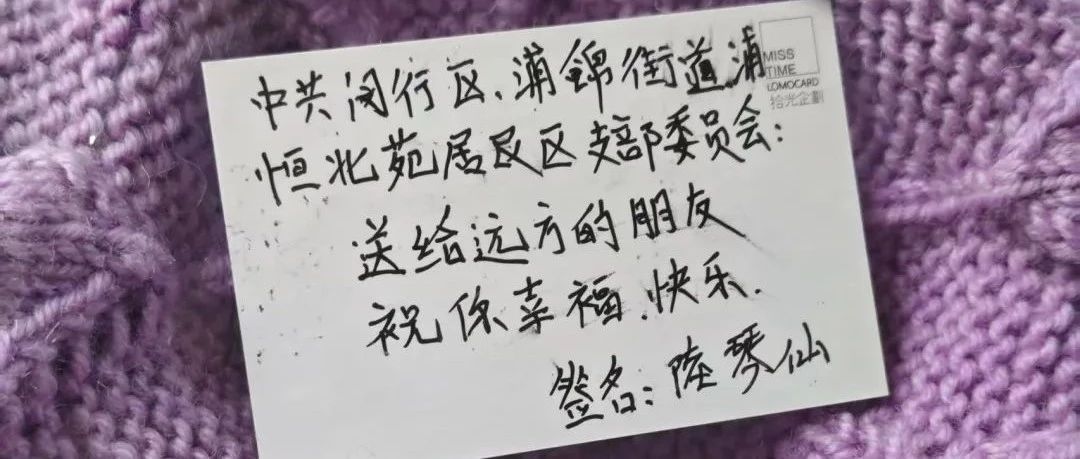 中共闵行区、浦锦街道浦
恒北苑居民区支部委员会:
送给远方的朋友
祝你幸福、快乐.
签名:陆琴仙
MISS
TIME
LOMOCARD
拾光企劃